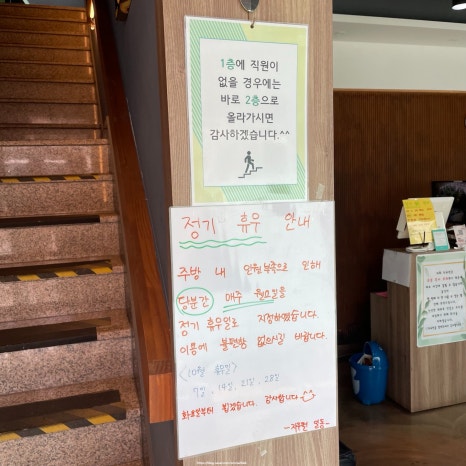 1층에 직원이
없을 경우에는
바로 2층으로
올라가시면
감사하겠습니다.^^
정기 휴무 안내
주방 내 인원부족으로 인해
당분간 매주 월요일을
정기 휴무일로 지정하겠습니다.
이용에 불편함 없으시길 바랍니다.
(10월 휴무일)
7일, 14일, 21일, 28일
화요일부터 뵙겠습니다. 감사합니다.